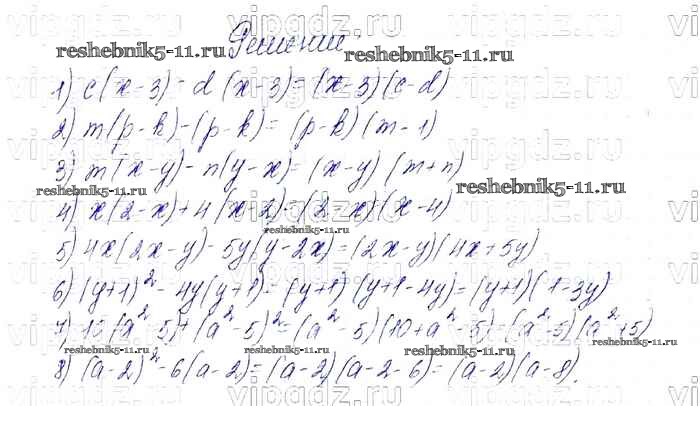 vipgdz.ru vipgdz.ru vipgdz.ru
Решение.
reshebnik5-11.ru reshebnik5-11.ru
1) c(x-3) - d(x-3) = (x-3)(c-d)
2) m(p-k) - (p-k) = (p-k)(m-1)
3) m(x-y) - n(y-x) = (x-y)(m+n)
reshebnik5-11.ru reshebnik5-11.ru
4) x(2-x) + 4(x-2) = (2-x)(x-4)
reshebnik5-11.ru
5) 4x(2x-y) - 5y(y-2x) = (2x-y)(4x+5y)
6) (y+1)² - 4y(y+1) = (y+1)(y+1-4y) = (y+1)(1-3y)
7) 10(a²-5) + (a²-5)² = (a²-5)(10+a²-5) = (a²-5)(a²+5)
reshebnik5-11.ru reshebnik5-11.ru reshebnik5-11.ru reshebnik5-11.ru
8) (a-2)² - 6(a-2) = (a-2)(a-2-6) = (a-2)(a-8).
vipgdz.ru vipgdz.ru vipgdz.ru